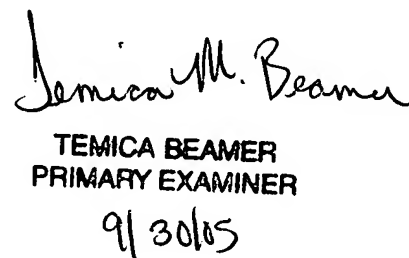 Temica M. Beamer
TEMICA BEAMER
PRIMARY EXAMINER
9/30/05